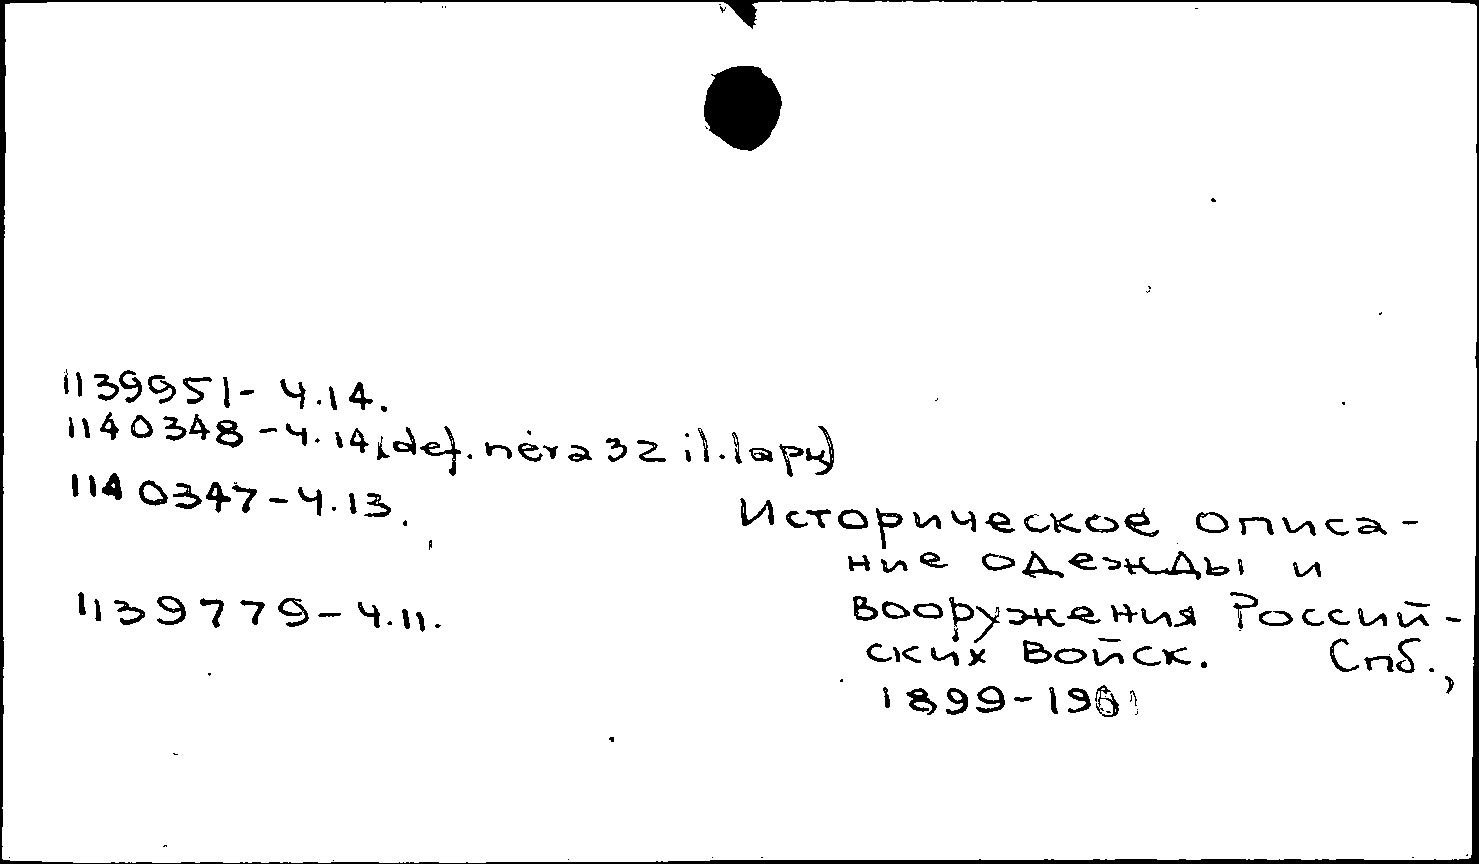 1139951 - Ч.14.
1140348 - Ч.14 (def. nėra 32 il. lapų)
1140347 - Ч.13.
1139779 - Ч.11.
Историческое описа-
ние одежды и
вооружения Россий-
ских войск. Спб.,
1899-1901